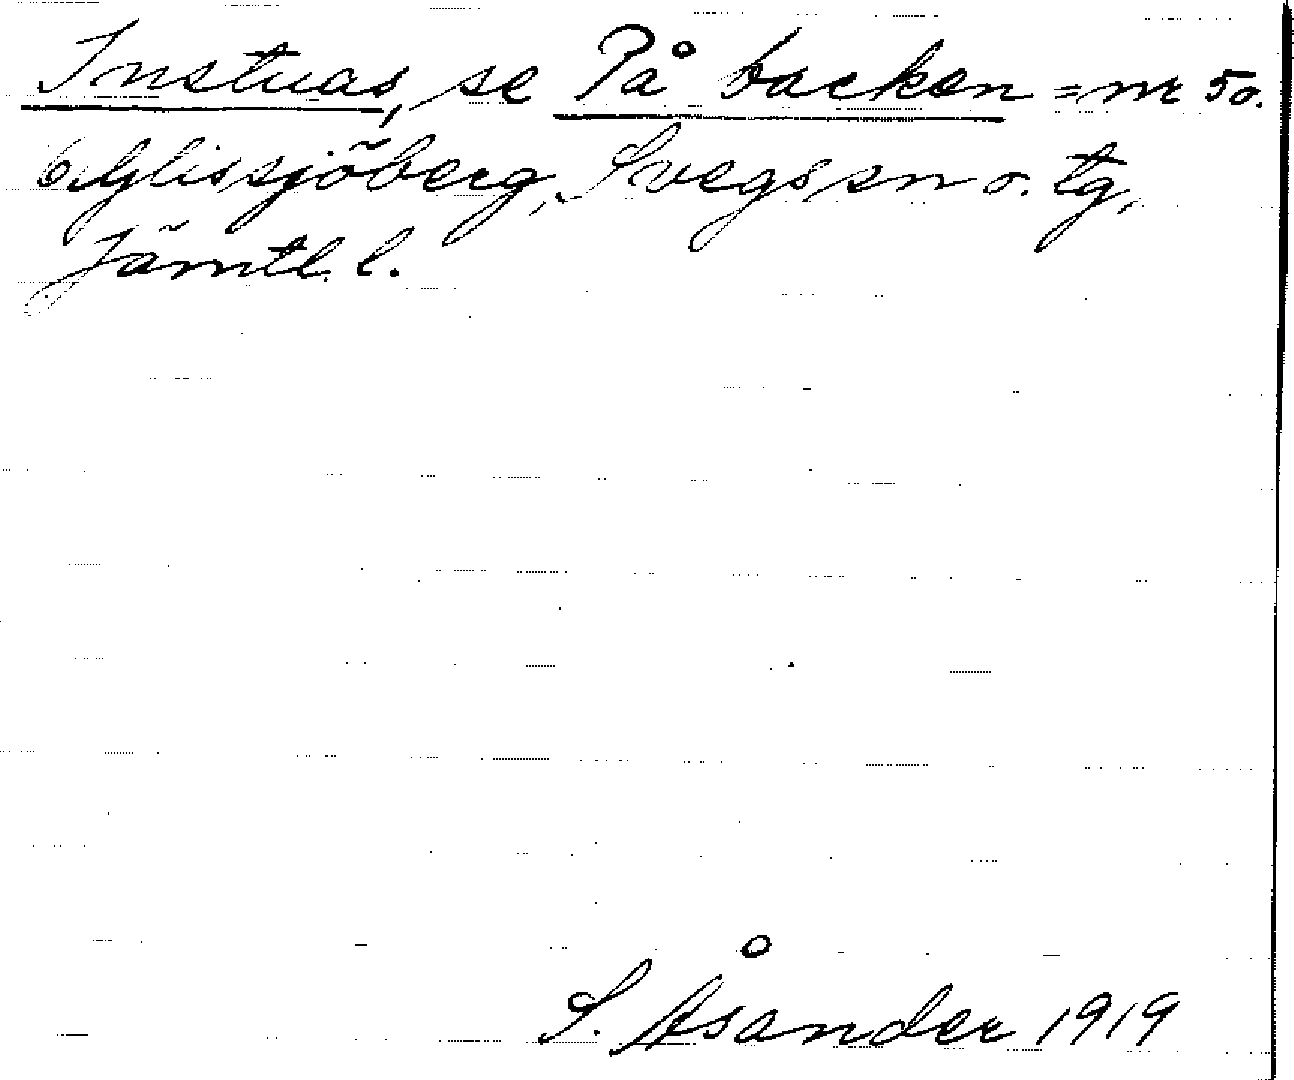 Instuas, se På backen = nr 50.
Glissjöberg, Svegs sn o. tg,
Jämtl. l.
S. Åsander 1919